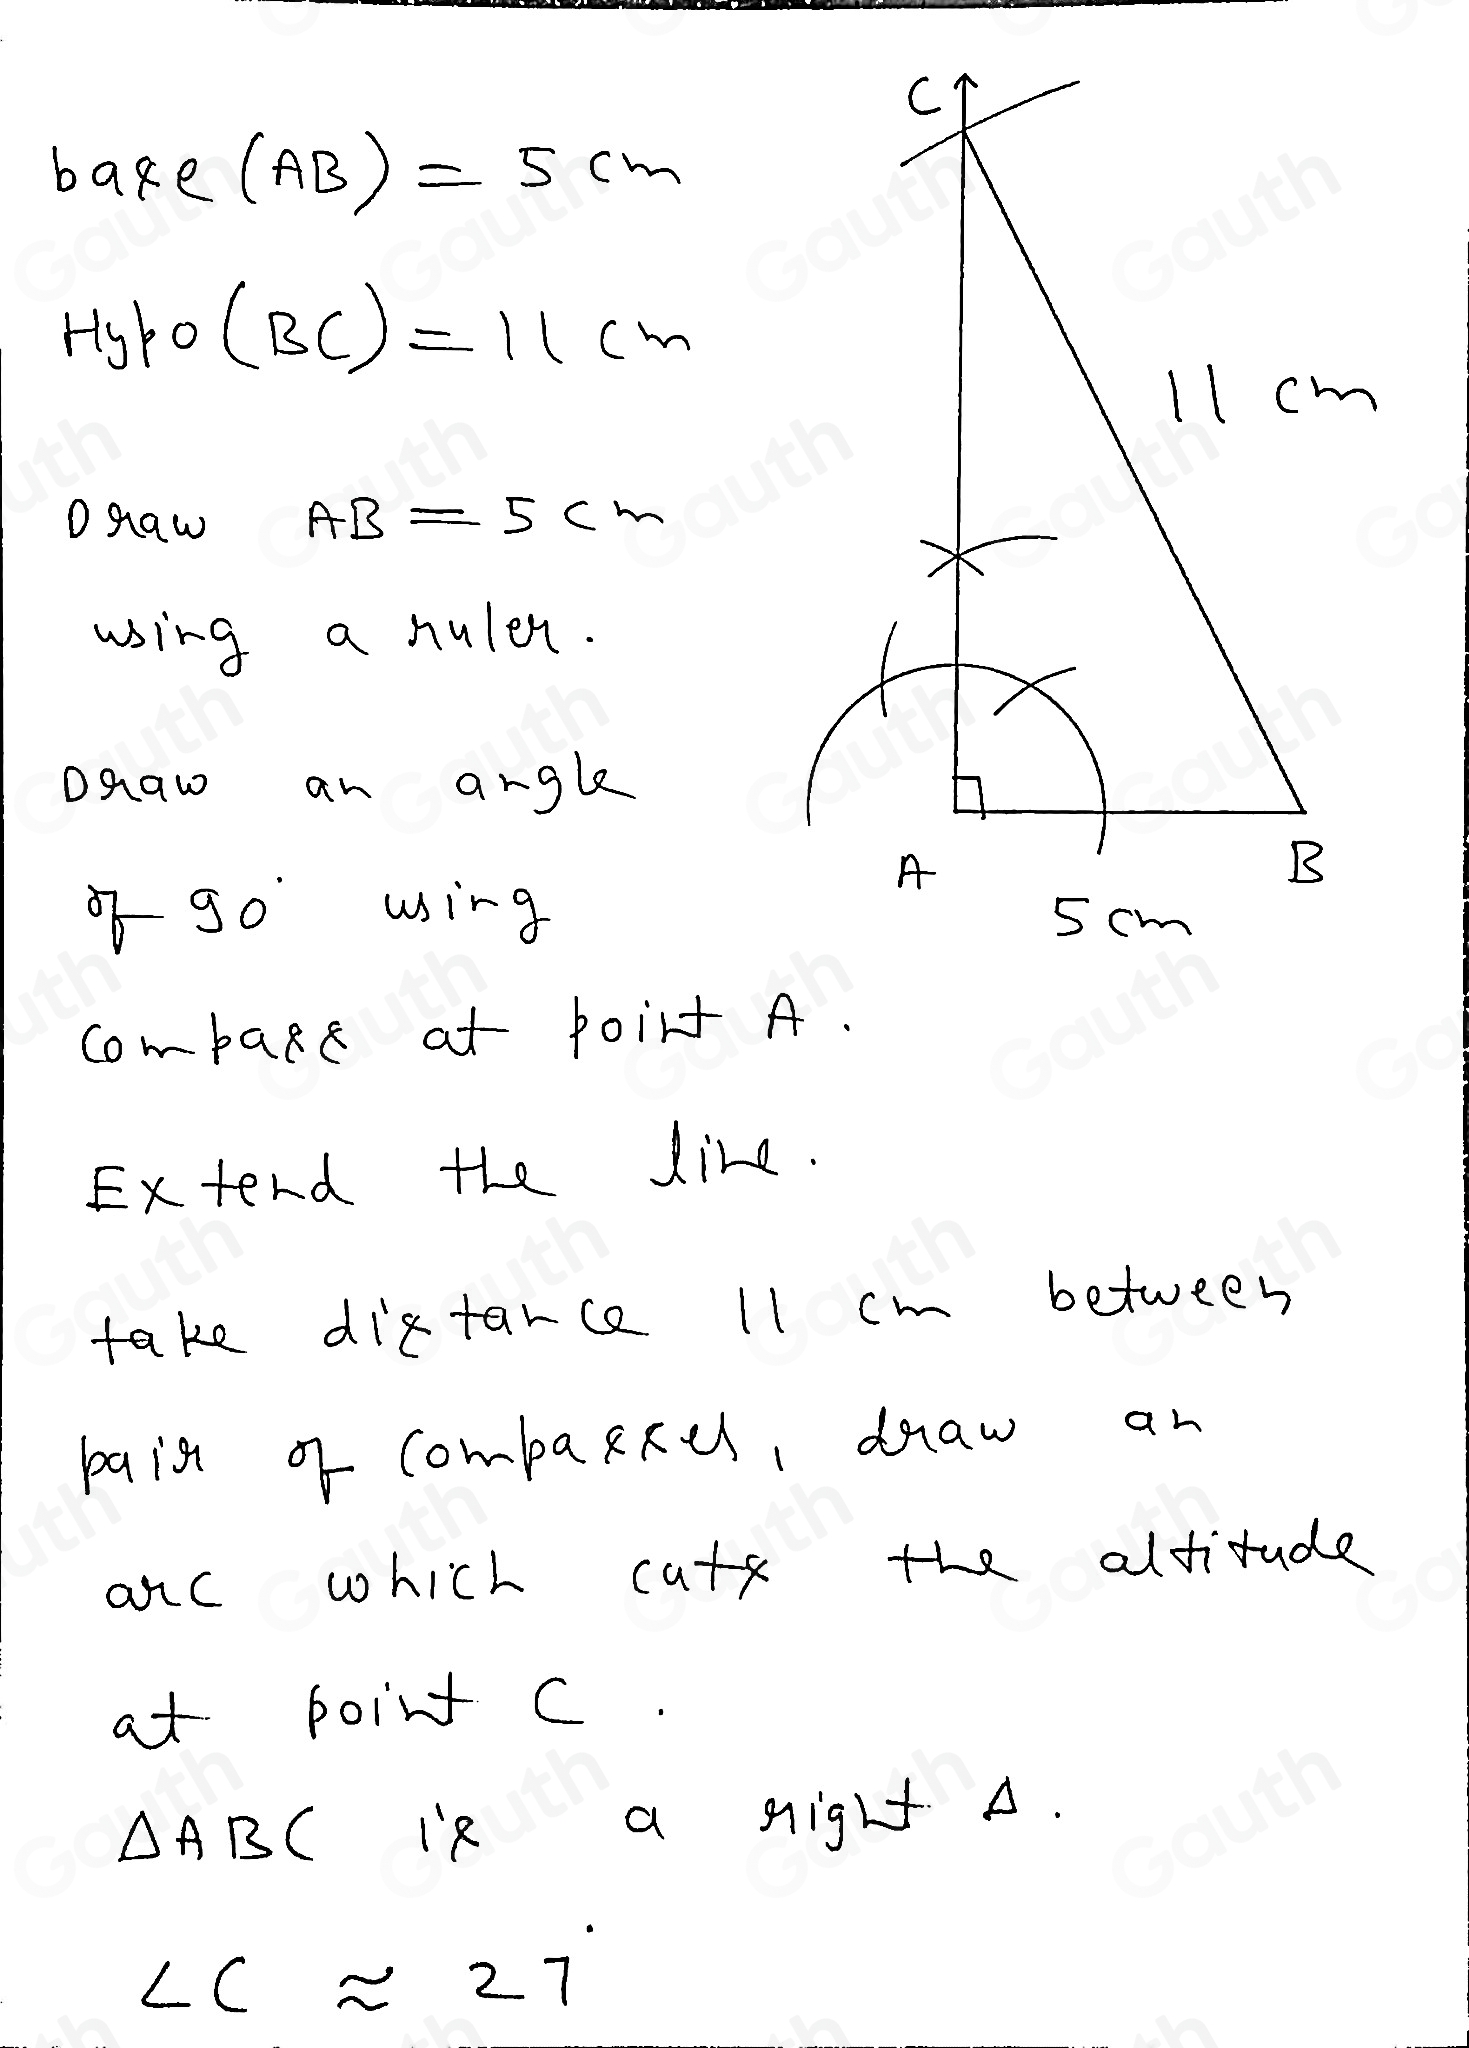 base (AB) = 5 cm
Hypo (BC) = 11 cm
Draw AB = 5 cm
using a ruler.
Draw an angle
of 90° using
compass at point A.
Extend the line.
take distance 11 cm between
pair of compasses, draw an
arc which cuts the altitude
at point C.
△ABC is a right △.
∠C ≈ 27°
C
11 cm
A
B
5 cm
Gauth